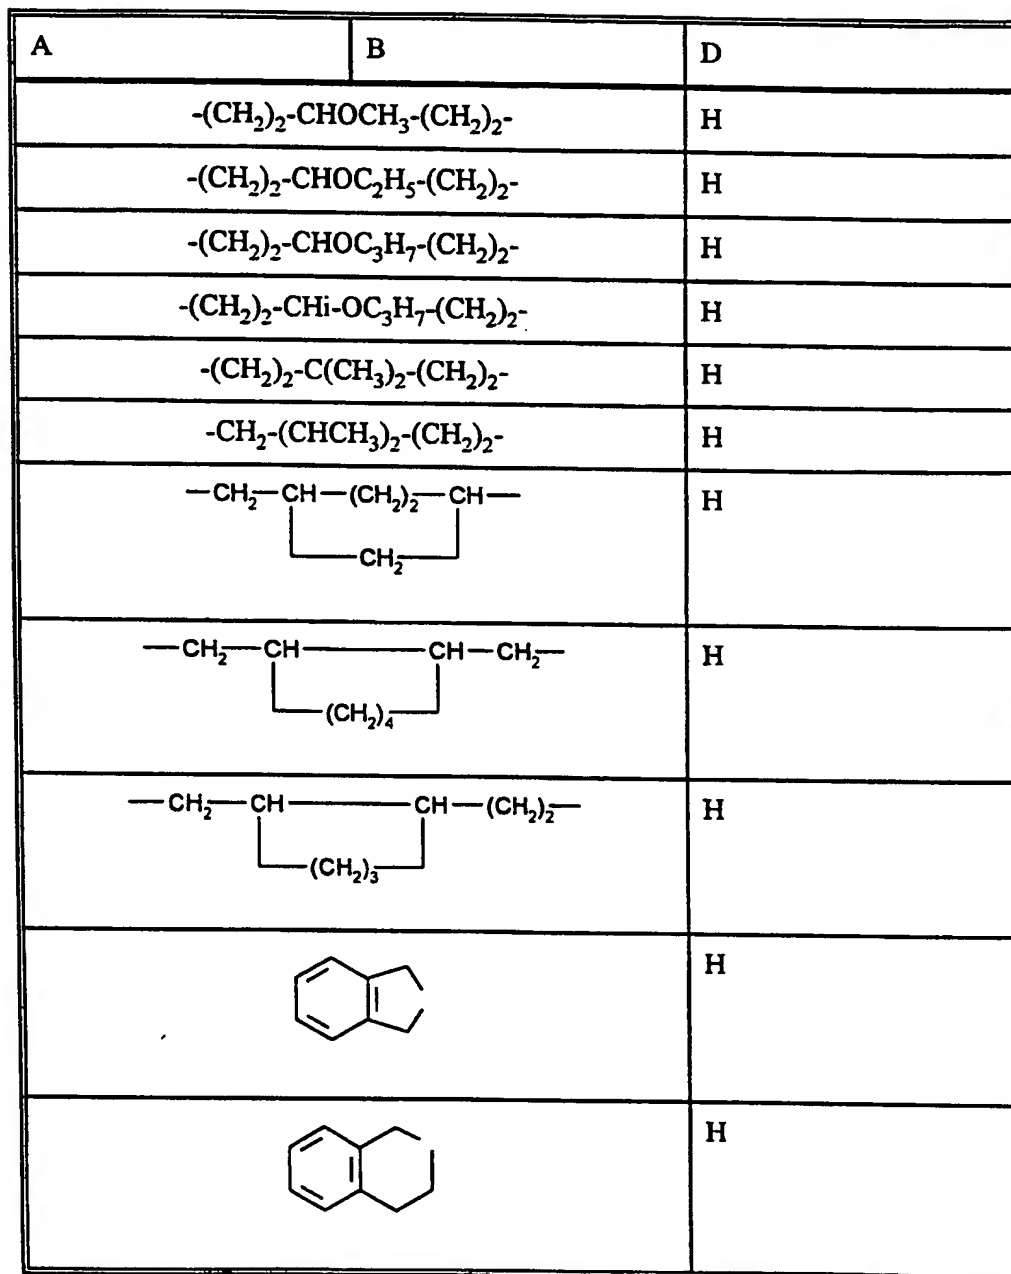 A B D
-(CH₂)₂-CHOCH₃-(CH₂)₂- H
-(CH₂)₂-CHOC₂H₅-(CH₂)₂- H
-(CH₂)₂-CHOC₃H₇-(CH₂)₂- H
-(CH₂)₂-CHi-OC₃H₇-(CH₂)₂- H
-(CH₂)₂-C(CH₃)₂-(CH₂)₂- H
-CH₂-(CHCH₃)₂-(CH₂)₂- H
—CH₂—CH—(CH₂)₂—CH— H
CH₂
—CH₂—CH—CH—CH₂— H
(CH₂)₄
—CH₂—CH—CH—(CH₂)₂— H
(CH₂)₃
H
H